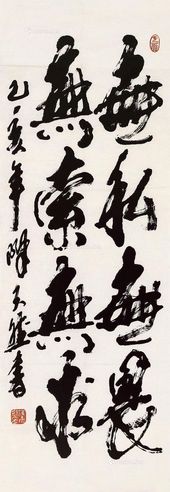 無私無畏
無索無求
乙亥年陳天然書